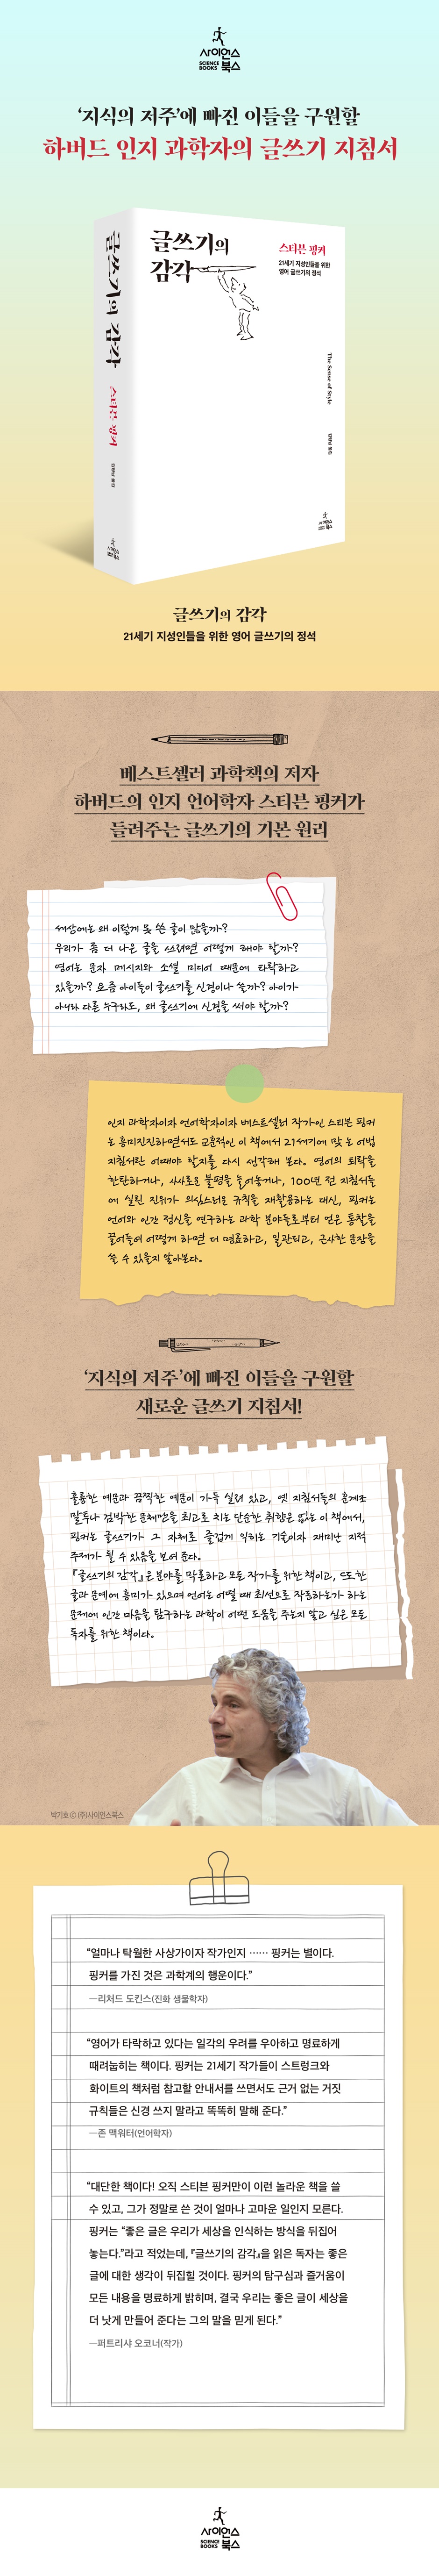 사이언스
SCIENCE BOOKS 북스
‘지식의 저주’에 빠진 이들을 구원할
하버드 인지 과학자의 글쓰기 지침서
글쓰기의 감각
스티븐 핑커
글쓰기의
감각
스티븐 핑커
21세기 지성인들을 위한
영어 글쓰기의 정석
The Sense of Style
사이언스
북스
글쓰기의 감각
21세기 지성인들을 위한 영어 글쓰기의 정석
베스트셀러 과학책의 저자
하버드의 인지 언어학자 스티븐 핑커가
들려주는 글쓰기의 기본 원리
세상에는 왜 이렇게 못 쓴 글이 많을까?
우리가 좀 더 나은 글을 쓰려면 어떻게 해야 할까?
영어는 문자 메시지와 소셜 미디어 때문에 타락하고
있을까? 요즘 아이들이 글쓰기를 신경이나 쓸까? 아이가
아니라 다른 누구라도, 왜 글쓰기에 신경을 써야 할까?
인지 과학자이자 언어학자이자 베스트셀러 작가인 스티븐 핑커
는 흥미진진하면서도 교훈적인 이 책에서 21세기에 맞는 어법
지침서란 어때야 할지를 다시 생각해 본다. 영어의 퇴락을
한탄하거나, 사사로운 불평을 늘어놓거나, 100년 전 지침서들
에 실린 진위가 의심스러운 규칙을 재활용하는 대신, 핑커는
언어와 인간 정신을 연구하는 과학 분야들로부터 얻은 통찰을
끌어들여 어떻게 하면 더 명료하고, 일관되고, 근사한 문장을
쓸 수 있을지 알아본다.
‘지식의 저주’에 빠진 이들을 구원할
새로운 글쓰기 지침서!
훌륭한 예문과 끔찍한 예문이 가득 실려 있고, 옛 지침서들의 훈계조
말투나 검박한 문체만을 최고로 치는 단순한 취향은 없는 이 책에서,
핑커는 글쓰기가 그 자체로 즐겁게 익히는 기술이자 재미난 지적
주제가 될 수 있음을 보여 준다.
『글쓰기의 감각』은 분야를 막론하고 모든 작가를 위한 책이고, 또한
글과 문예에 흥미가 있으며 언어는 어떨 때 최선으로 작동하는가 하는
문제에 인간 마음을 탐구하는 과학이 어떤 도움을 주는지 알고 싶은 모든
독자를 위한 책이다.
박기호 ⓒ (주)사이언스북스
“얼마나 탁월한 사상가이자 작가인지 …… 핑커는 별이다.
핑커를 가진 것은 과학계의 행운이다.”
—리처드 도킨스(진화 생물학자)
“영어가 타락하고 있다는 일각의 우려를 우아하고 명료하게
때려눕히는 책이다. 핑커는 21세기 작가들이 스트렁크와
화이트의 책처럼 참고할 안내서를 쓰면서도 근거 없는 거짓
규칙들은 신경 쓰지 말라고 똑똑히 말해 준다.”
—존 맥워터(언어학자)
“대단한 책이다! 오직 스티븐 핑커만이 이런 놀라운 책을 쓸
수 있고, 그가 정말로 쓴 것이 얼마나 고마운 일인지 모른다.
핑커는 “좋은 글은 우리가 세상을 인식하는 방식을 뒤집어
놓는다.”라고 적었는데, 『글쓰기의 감각』을 읽은 독자는 좋은
글에 대한 생각이 뒤집힐 것이다. 핑커의 탐구심과 즐거움이
모든 내용을 명료하게 밝히며, 결국 우리는 좋은 글이 세상을
더 낫게 만들어 준다는 그의 말을 믿게 된다.”
—퍼트리샤 오코너(작가)
사이언스
SCIENCE BOOKS 북스